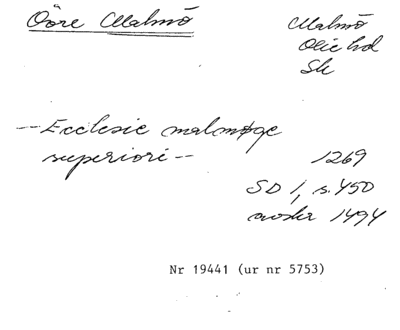 Övre Malmö
Malmö
Oxie hd
Sk
--Ecclesie malmøge
superiori--
1269
SD 1, s. 450
avskr 1494
Nr 19441 (ur nr 5753)